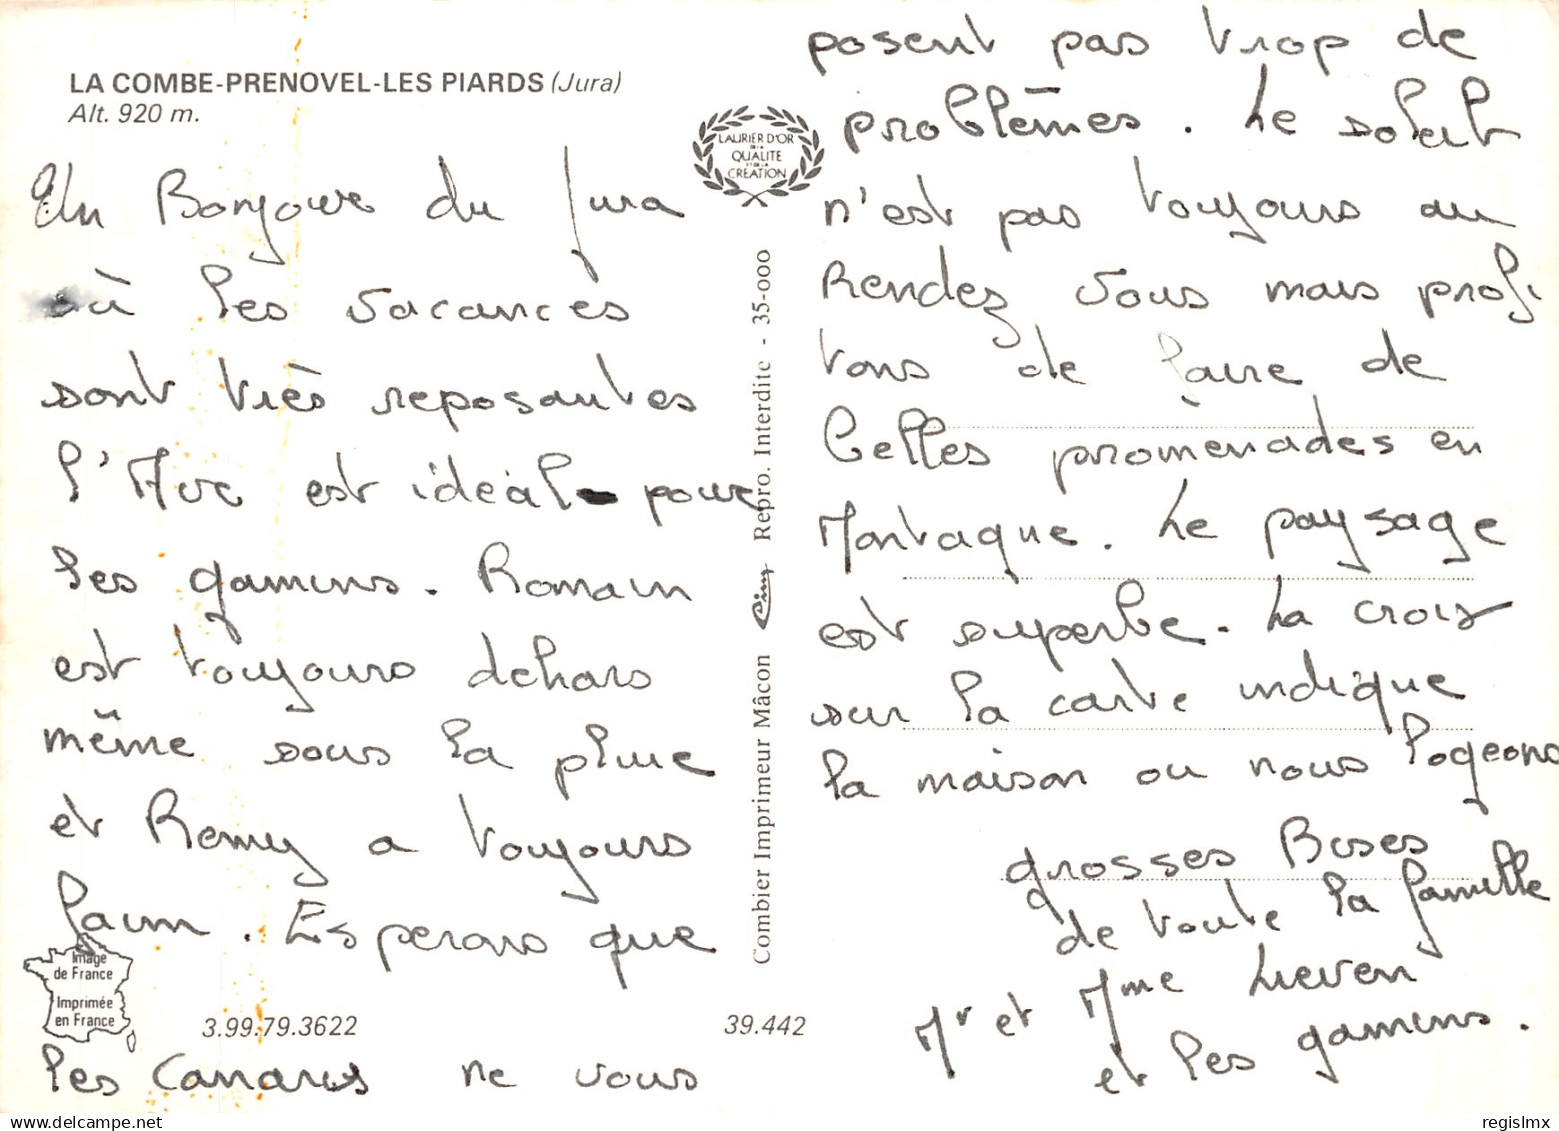 LA COMBE-PRENOVEL-LES PIARDS (Jura)
Alt. 920 m.
Un Bonjour du Jura
où les vacances
sont très reposantes
l'Air est idéal pour
les gamins. Romain
est toujours dehors
même sous la pluie
et Remy a toujours
faim. Esperons que
les Canaris ne vous
posent pas trop de
problèmes. Le soleil
n'est pas toujours au
Rendez vous mais profi
tons de faire de
belles promenades en
Montagne. Le paysage
est superbe. La croix
sur la carte indique
la maison ou nous logeons
grosses Bises
de toute la famille
Mr et Mme Lieven
et les gamins.
LAURIER D'OR
DE LA
QUALITE
ET DE LA
CREATION
Combier Imprimeur Mâcon Cim Repro. Interdite - 35-000
Image
de France
Imprimée
en France
3.99.79.3622
39.442
regislmx